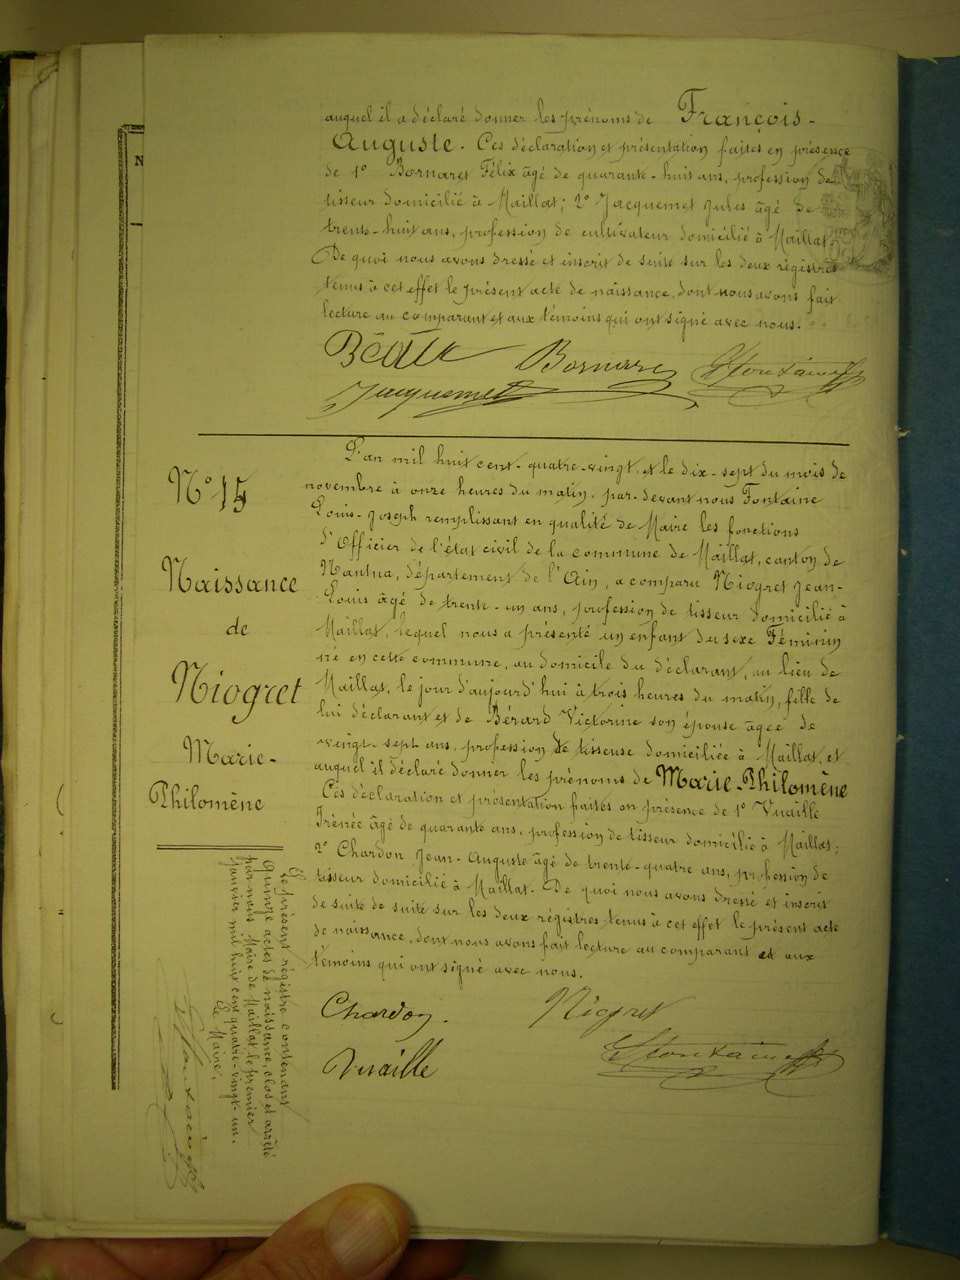 N
auquel il a déclaré donner les prénoms de François-
Auguste. Ces déclaration et présentation faites en présence
de 1° Bornaret Félix âgé de quarante-huit ans, profession de
tisseur domicilié à Maillat; 2° Jacquemet Jules âgé de
trente-huit ans, profession de cultivateur domicilié à Maillat.
De quoi nous avons dressé et inscrit de suite sur les deux régistres
tenus à cet effet le présent acte de naissance, dont nous avons fait
lecture au comparant et aux témoins qui ont signé avec nous.
Bornaret
Jacquemet
N° 15
Naissance
de
Niogret
Marie-
Philomène
L'an mil huit cent-quatre-vingt, et le dix-sept du mois de
novembre à onze heures du matin, par-devant nous Fontaine
Louis-Joseph remplissant en qualité de Maire les fonctions
d'Officier de l'état civil de la commune de Maillat, canton de
Nantua, département de l'Ain, a comparu Niogret Jean-
Louis âgé de trente-un ans, profession de tisseur domicilié à
Maillat, lequel nous a présenté un enfant du sexe Féminin
né en cette commune, au domicile du déclarant, au lieu de
Maillat, le jour d'aujourd'hui à trois heures du matin, fille de
lui déclarant et de Bérard Victorine son épouse âgée de
vingt-sept ans, profession de tisseuse domiciliée à Maillat, et
auquel il déclaré donner les prénoms de Marie-Philomène
Ces déclaration et présentation faites en présence de 1° Vuaille
Irénée âgé de quarante ans, profession de tisseur domicilié à Maillat;
2° Chardon Jean-Auguste âgé de trente-quatre ans, profession de
tisseur domicilié à Maillat. De quoi nous avons dressé et inscrit
de suite de suite sur les deux régistres tenus à cet effet le présent acte
de naissance, dont nous avons fait lecture au comparant et aux
témoins qui ont signé avec nous.
Chardon.
Niogret
Vuaille
Lfontaine
Le présent régistre contenant
Quinze actes de naissance, clos et arrêté
par nous Maire de Maillat le premier
janvier mil huit cent quatre-vingt-un.
Le Maire,
Lfontaine